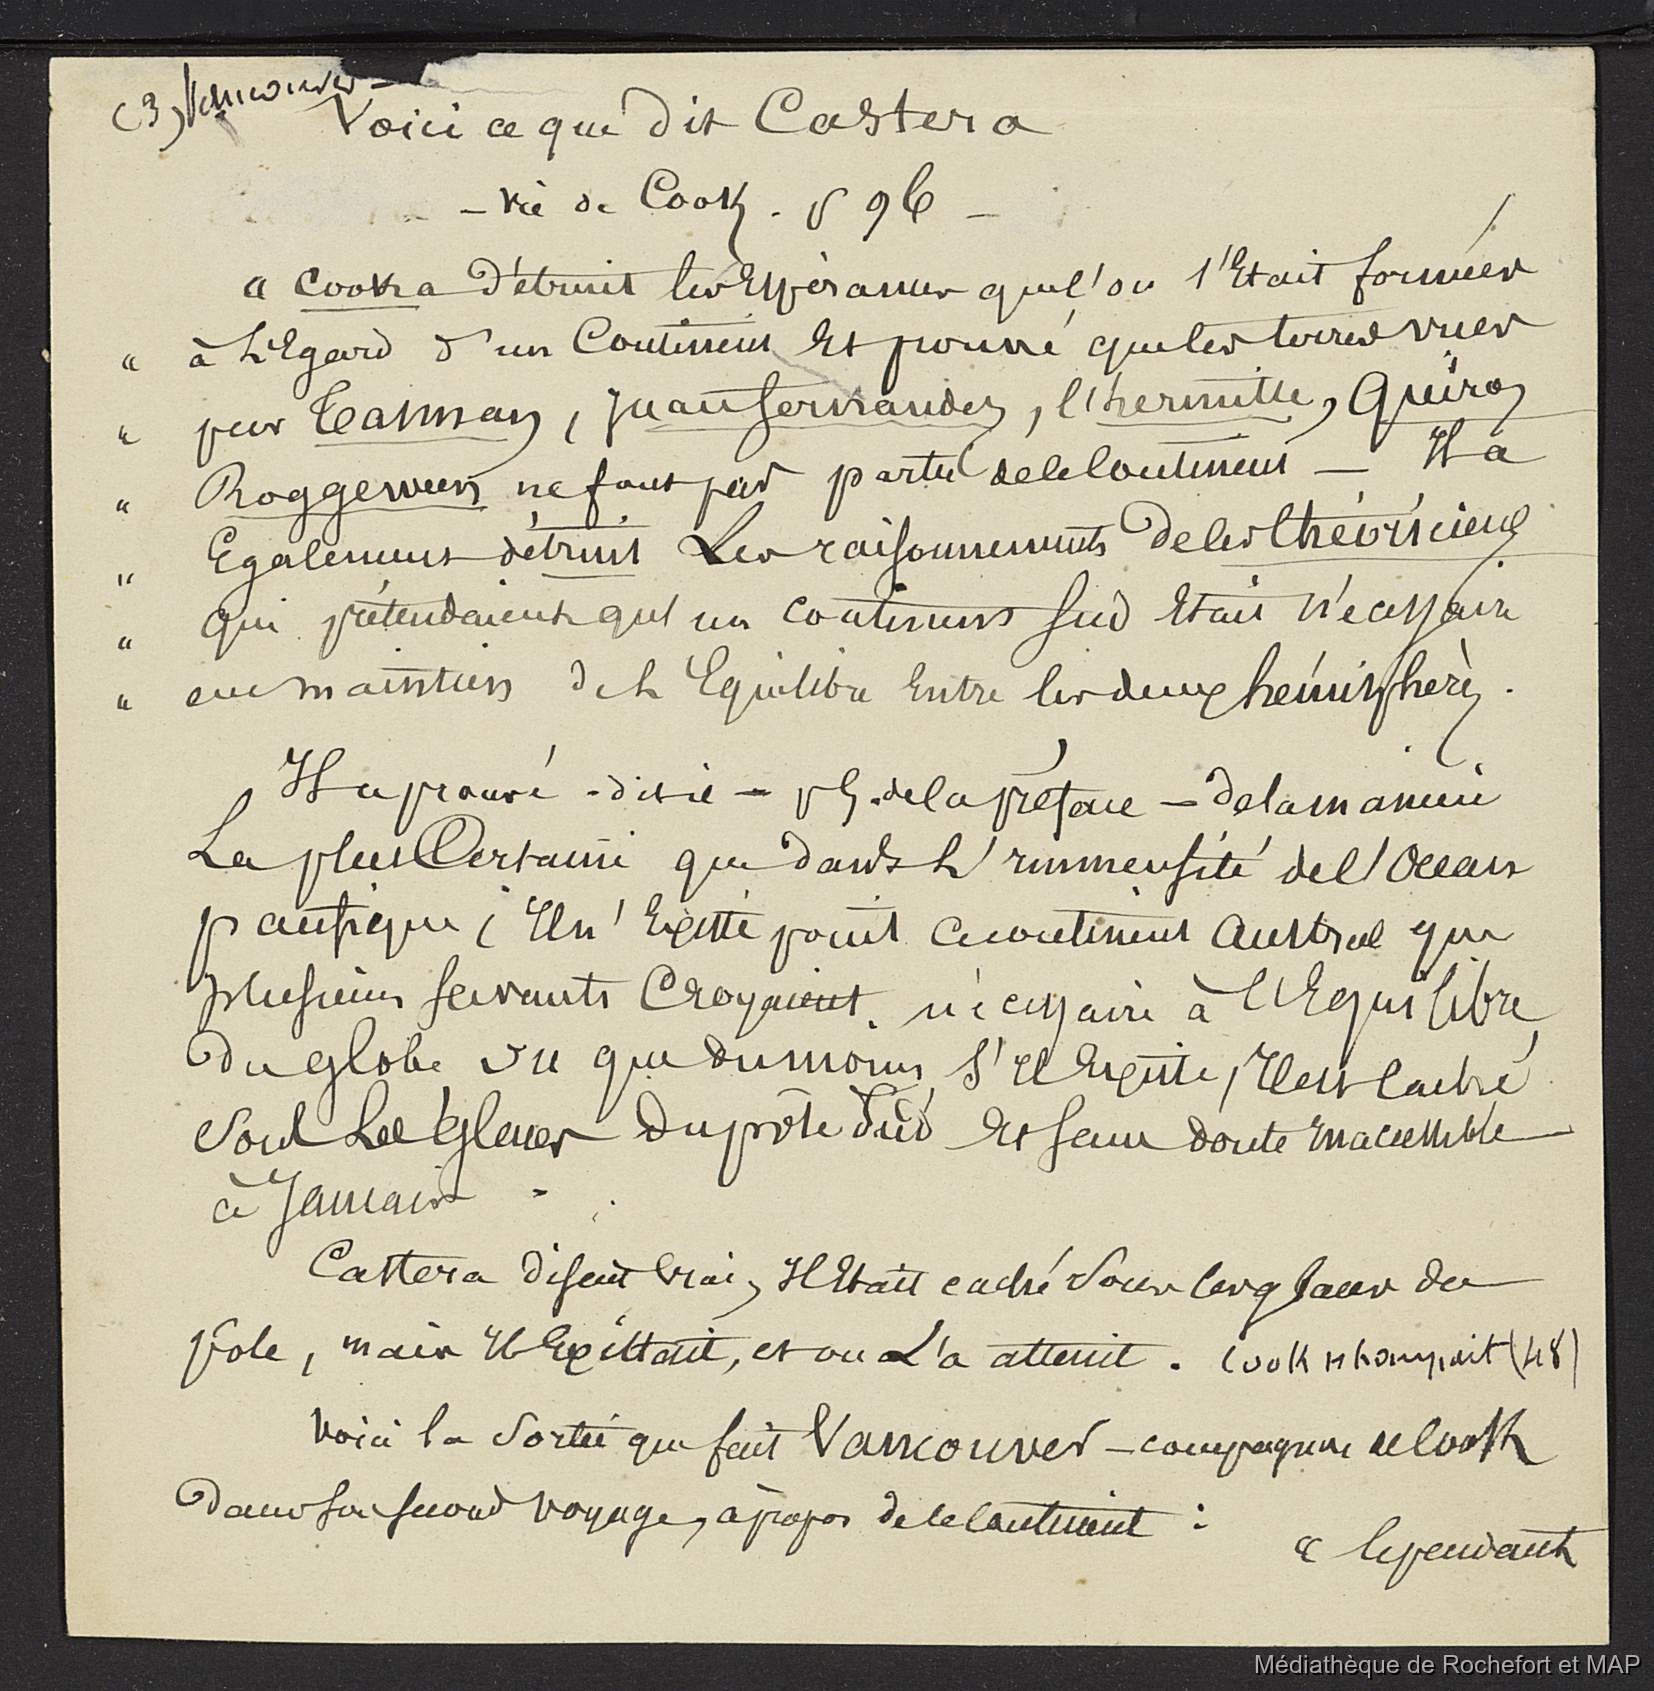 (3) Vancouver -
Voici ce que dit Castera
- vie de Cook. p 96 -
« Cook a détruit les Espérances que l'on s'Etait formées
" à L'Egard d'un Continent Et prouvé que les terres vues
" par Tasman, Juan fernandez, l'hermitte, Quiros
" Roggeween ne font pas partie de ce Continent — Il a
" Egalement détruit Les raisonnements de ces théoriciens
" qui prétendaient qu'un continent sud Etait nécessaire
" au maintien de L'Equilibre Entre les deux hémisphères.
Il a prouvé - dit il - p 5. de la préface - de la manière
La plus Certaine que dans L'immensité de l'Ocean
pacifique, Il n'Existe point ce continent Austral que
plusieurs savants Croyaient nécessaire à l'Equilibre
Du globe ou que du moins S'il Existe, Il est caché
sous Les Glaces Du pôle Sud Et sans doute Inaccessible
à Jamais.
Castera disait vrai, Il Etait caché sous les glaces du
pole, mais Il Existait, et on L'a atteint. Cook se trompait (48)
Voici la sortie que fait Vancouver - compagnon de Cook
Dans son second voyage, à propos de ce continent :
« Cependant